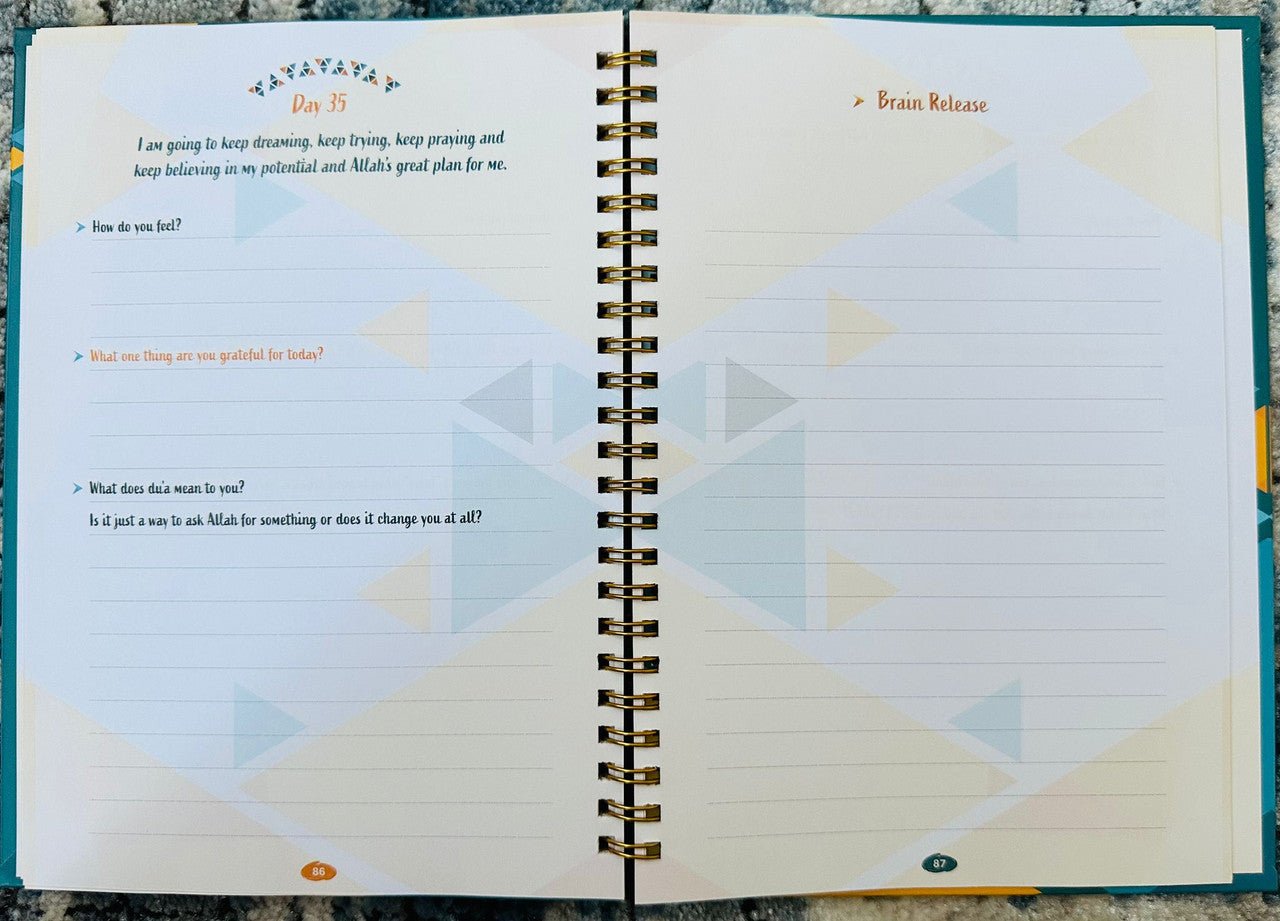 Day 35
I am going to keep dreaming, keep trying, keep praying and
keep believing in my potential and Allah's great plan for me.
How do you feel?
What one thing are you grateful for today?
What does du'a mean to you?
Is it just a way to ask Allah for something or does it change you at all?
86
Brain Release
87